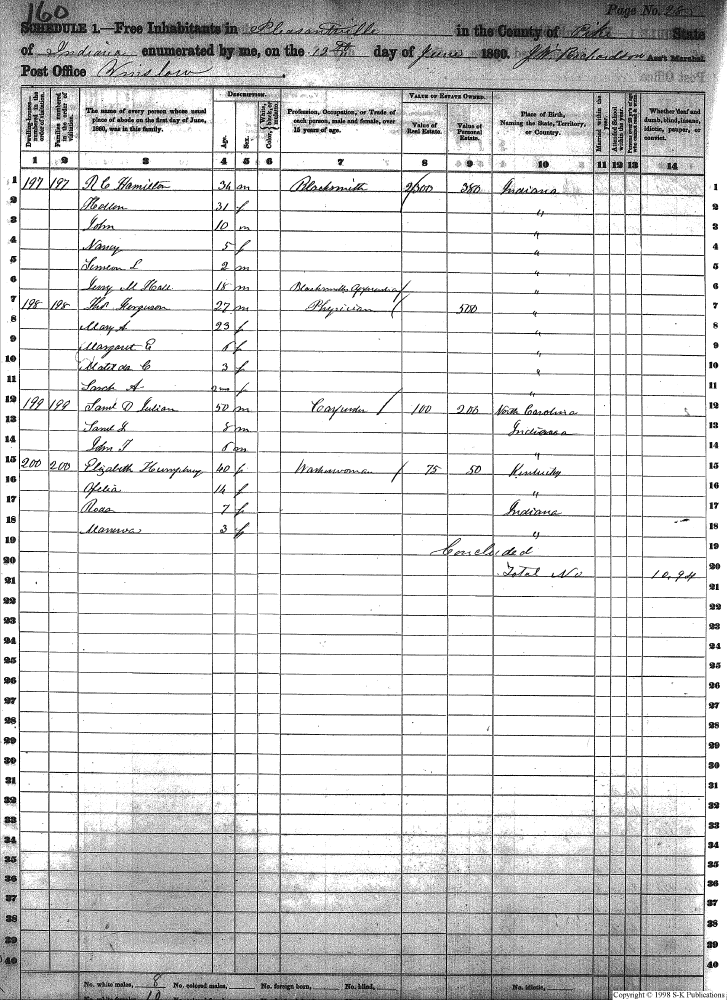 160
Page No. 28
SCHEDULE 1.—Free Inhabitants in Pleasantville in the County of Pike State
of Indiana enumerated by me, on the 12th day of June 1860. J. W. Richardson Ass't Marshal.
Post Office Winslow.
Dwelling-houses numbered in the order of visitation.
Families numbered in the order of visitation.
The name of every person whose usual place of abode on the first day of June, 1860, was in this family.
DESCRIPTION.
Age.
Sex.
Color, White, black, or mulatto.
Profession, Occupation, or Trade of each person, male and female, over 15 years of age.
VALUE OF ESTATE OWNED.
Value of Real Estate.
Value of Personal Estate.
Place of Birth, Naming the State, Territory, or Country.
Married within the year.
Attended School within the year.
Whether deaf and dumb, blind, insane, idiotic, pauper, or convict.
1 2 3 4 5 6 7 8 9 10 11 12 13 14
1 197 197 R C Hamilton 34 m Blacksmith 380 Indiana 1
2 31 f " 2
3 John 10 m " 3
4 Nancy 5 f " 4
5 Simeon L 2 m " 5
6 Jerry M Hall 18 m Blacksmiths Apprentice " 6
7 198 198 Thos Ferguson 27 m Physician 500 " 7
8 Mary A 23 f " 8
9 Margaret E 6 f " 9
10 Matilda C 3 f " 10
11 Sarah A f " 11
12 199 199 Saml D Julian 50 m Carpenter 100 200 North Carolina 12
13 8 m Indiana 13
14 John T 6 m " 14
15 200 200 Elizabeth Humphrey 40 f Washerwoman 75 50 Kentucky 15
16 Ofelia 14 f " 16
17 Rosa 7 f Indiana 17
18 Manerva 3 f " 18
19 Concluded 19
20 Total No 10.94 20
21 21
22 22
23 23
24 24
25 25
26 26
27 27
28 28
29 29
30 30
31 31
32 32
33 33
34 34
35 35
36 36
37 37
38 38
39 39
40 40
No. white males, 8 No. colored males, No. foreign born, No. blind, No. idiotic,
Copyright © 1998 S-K Publications